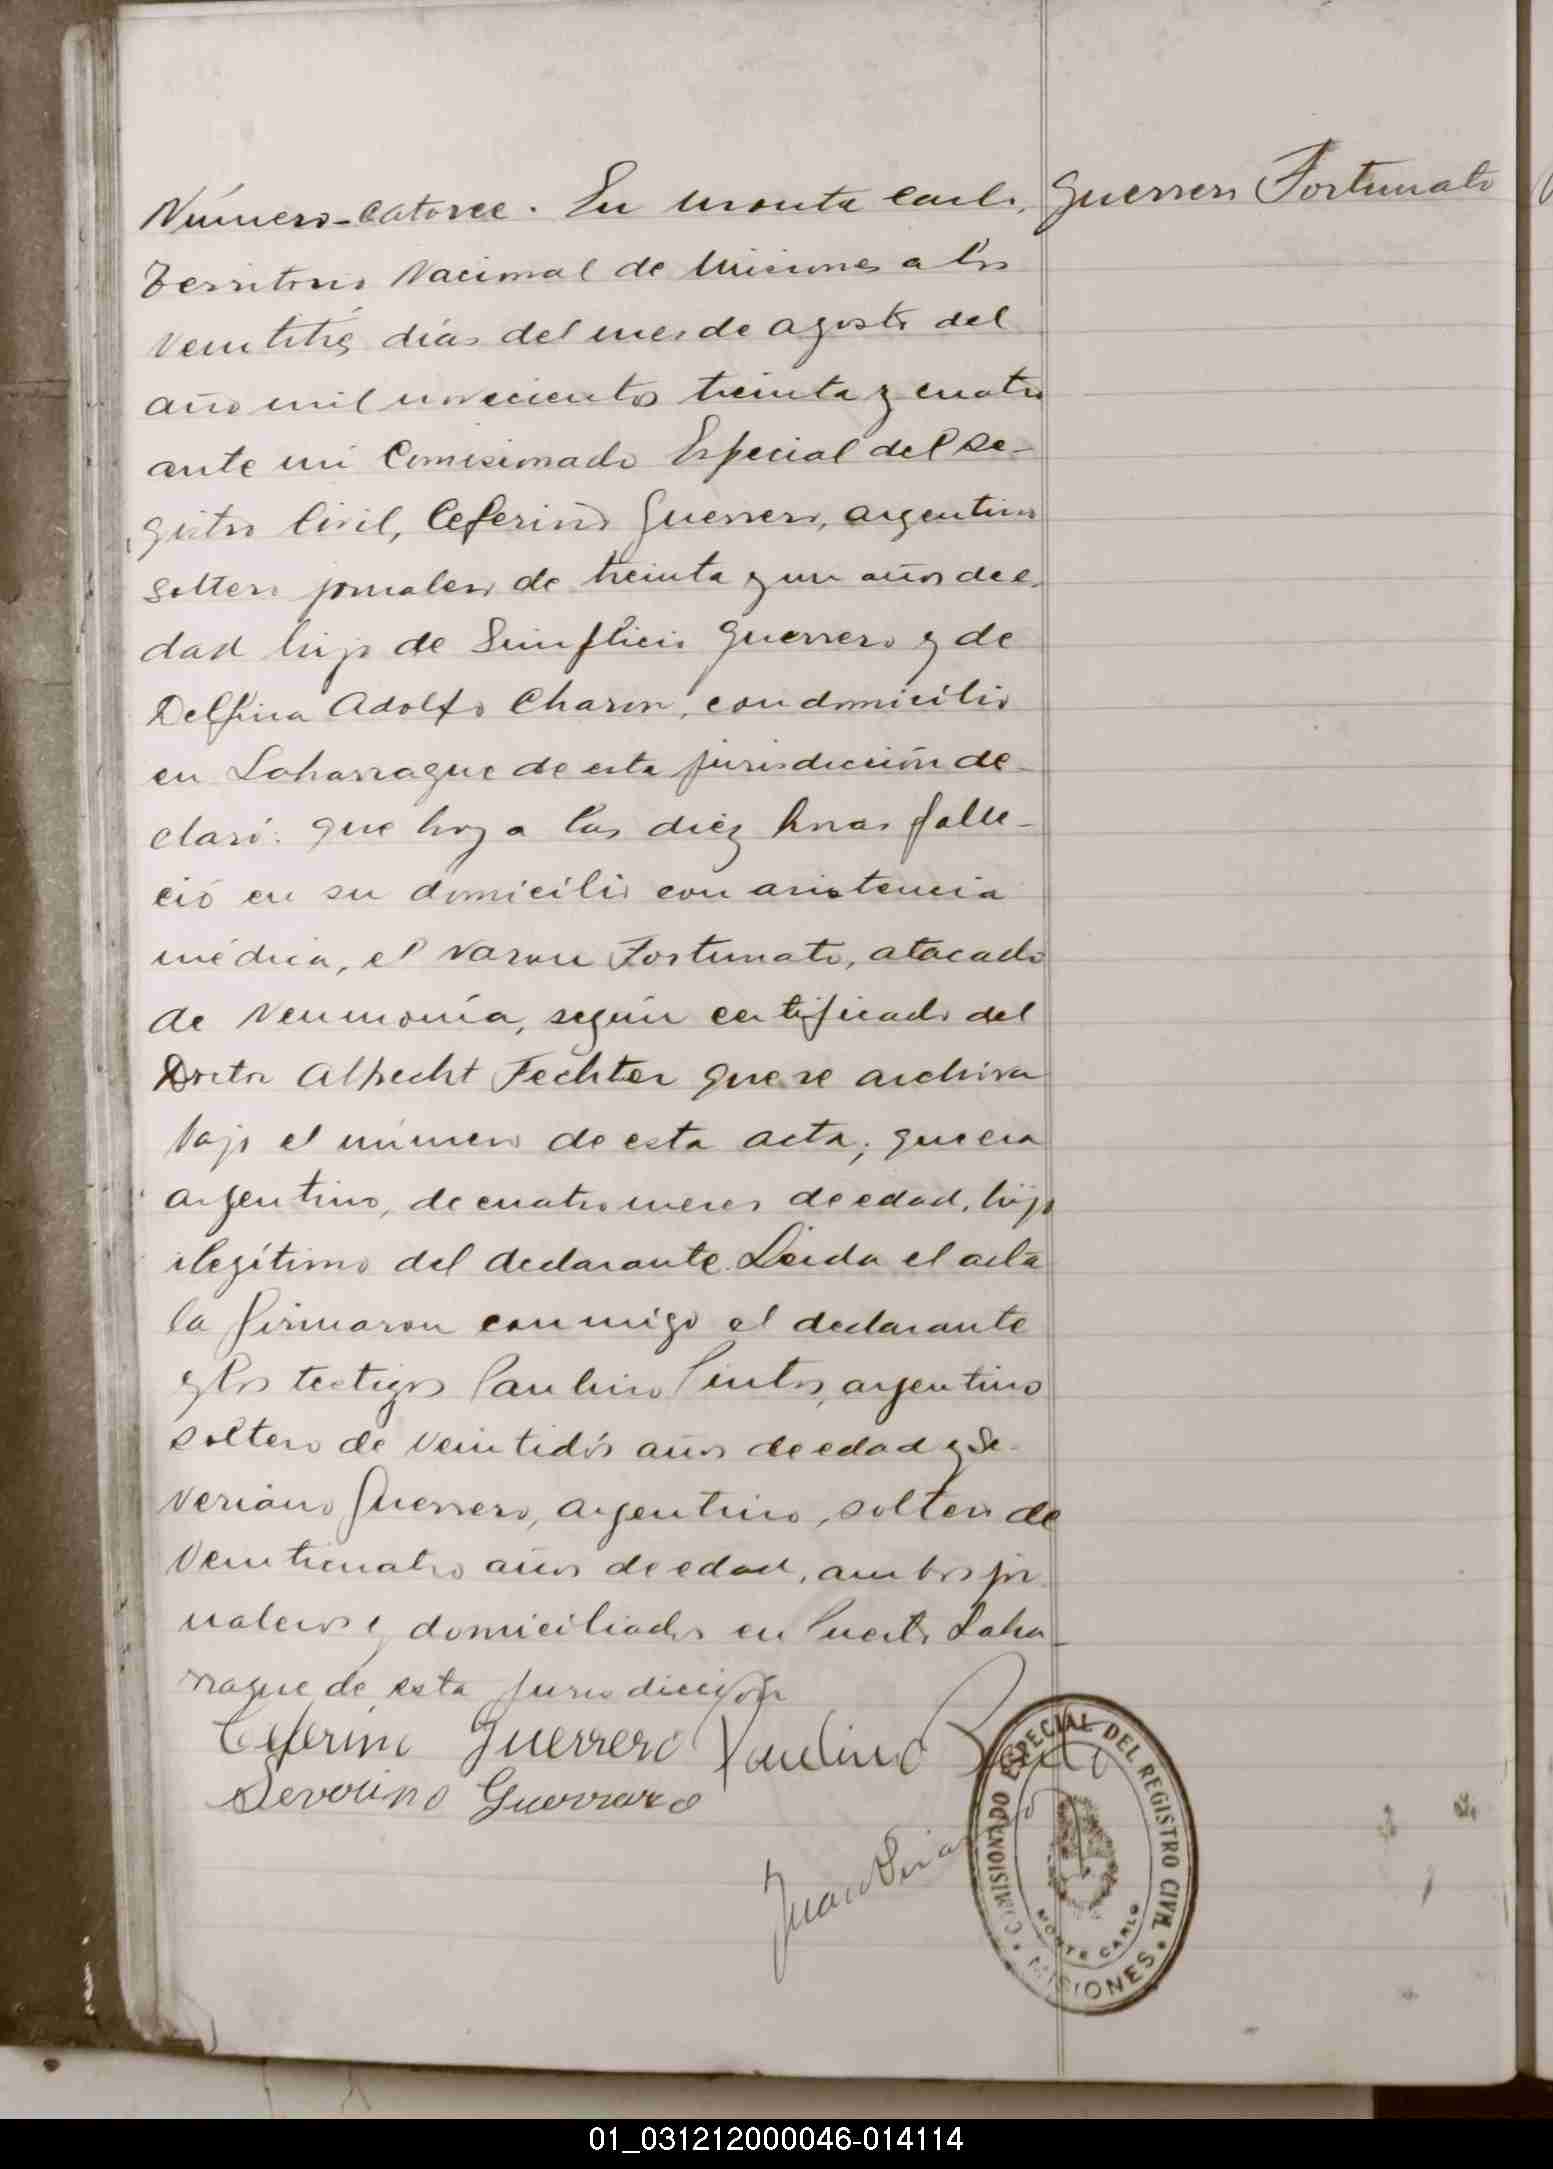 Número-catorce. En monte carlo, Guerrero Fortunato
Territorio Nacional de Misiones a los
veintitrés días del mes de agosto del
año mil novecientos treinta y cuatro
ante mi Comisionado Especial del Re-
gistro Civil, Ceferino Guerrero, argentino
soltero jornalero de treinta y un años de e-
dad hijo de Simplicio Guerrero y de
Delfina Adolfo Charon, con domicilio
en Laharrague de esta jurisdicción de-
claró: que hoy a las diez horas falle-
ció en su domicilio con asistencia
médica, el varon Fortunato, atacado
de Neumonía, según certificado del
Doctor Albrecht Fechter que se archiva
bajo el número de esta acta; que era
argentino, de cuatro meses de edad, hijo
ilegítimo del declarante. Leida el acta
la firmaron conmigo el declarante
y los testigos Paulino Pintos, argentino
soltero de veintidós años de edad y Se-
veriano Guerrero, argentino, soltero de
veinticuatro años de edad, ambos jor-
naleros y domiciliados en Puerto Laha-
rrague de esta jurisdicción
Ceferino Guerrero Paulino
Severino Guerrero
Juan
COMISIONADO ESPECIAL DEL REGISTRO CIVIL
MONTE CARLO
MISIONES
01_031212000046-014114